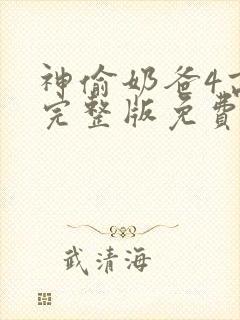 神偷奶爸4
完整版免費
武清海